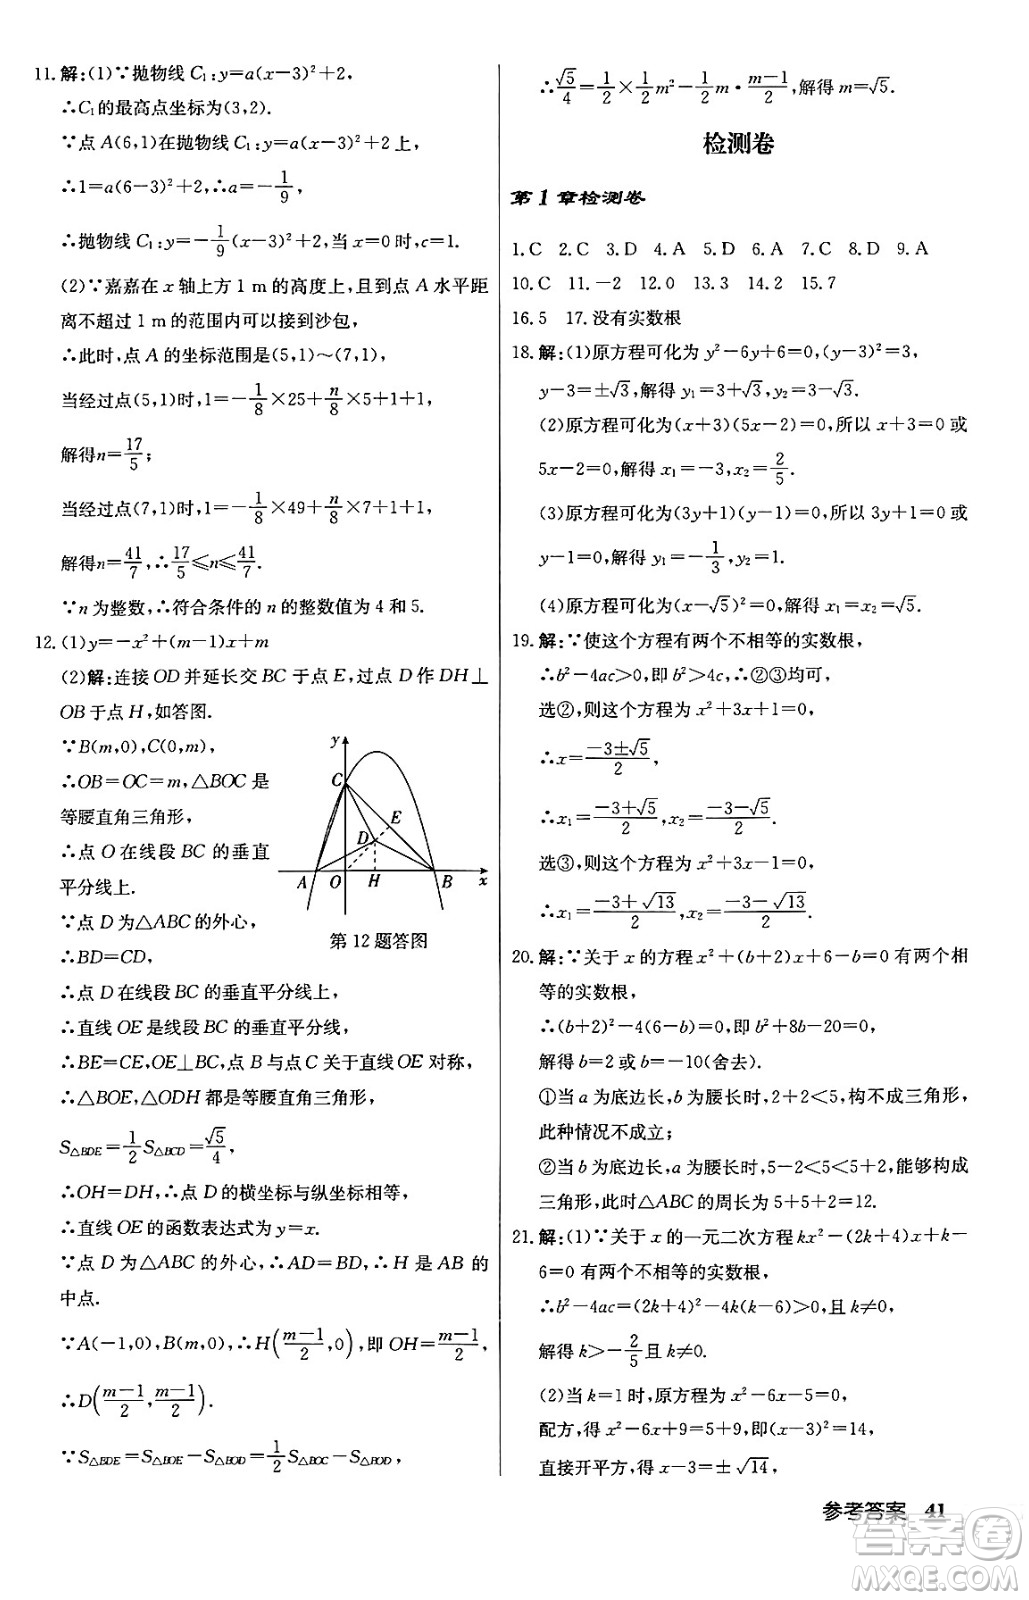 11.解:(1)∵抛物线 C₁:y=a(x−3)²+2,
∴C₁的最高点坐标为(3,2).
∵点 A(6,1)在抛物线 C₁:y=a(x−3)²+2上,
∴1=a(6−3)²+2,∴a=−1/9,
∴抛物线 C₁:y=−1/9(x−3)²+2,当 x=0时,c=1.
(2)∵嘉嘉在 x 轴上方 1 m 的高度上,且到点 A 水平距
离不超过 1 m 的范围内可以接到沙包,
∴此时,点 A 的坐标范围是(5,1)~(7,1),
当经过点(5,1)时,1=−1/8×25+n/8×5+1+1,
解得n=17/5;
当经过点(7,1)时,1=−1/8×49+n/8×7+1+1,
解得n=41/7,∴17/5≤n≤41/7.
∵n 为整数,∴符合条件的 n 的整数值为 4 和 5.
12.(1)y=−x²+(m−1)x+m
(2)解:连接 OD 并延长交 BC 于点 E,过点 D 作 DH⊥
OB 于点 H,如答图.
∵B(m,0),C(0,m),
∴OB=OC=m,△BOC 是
等腰直角三角形,
∴点 O 在线段 BC 的垂直
平分线上.
∵点 D 为△ABC 的外心,
∴BD=CD,
y
C
E
D
A
O
H
B
x
第 12 题答图
∴点 D 在线段 BC 的垂直平分线上,
∴直线 OE 是线段 BC 的垂直平分线,
∴BE=CE,OE⊥BC,点 B 与点 C 关于直线 OE 对称,
∴△BOE,△ODH 都是等腰直角三角形,
S△BDE=1/2 S△BCD=√5/4,
∴OH=DH,∴点 D 的横坐标与纵坐标相等,
∴直线 OE 的函数表达式为 y=x.
∵点 D 为△ABC 的外心,∴AD=BD,∴H 是 AB 的
中点.
∵A(−1,0),B(m,0),∴H((m−1)/2,0),即 OH=(m−1)/2,
∴D((m−1)/2,(m−1)/2).
∵S△BDE=S△BOE−S△BOD=1/2 S△BOC−S△BOD,
∴√5/4=1/2×1/2m²−1/2m·(m−1)/2,解得 m=√5.
检测卷
第 1 章检测卷
1.C 2.C 3.D 4.A 5.D 6.A 7.C 8.D 9.A
10.C 11.−2 12.0 13.3 14.2 15.7
16.5 17.没有实数根
18.解:(1)原方程可化为 y²−6y+6=0,(y−3)²=3,
y−3=±√3,解得 y₁=3+√3,y₂=3−√3.
(2)原方程可化为(x+3)(5x−2)=0,所以 x+3=0 或
5x−2=0,解得 x₁=−3,x₂=2/5.
(3)原方程可化为(3y+1)(y−1)=0,所以 3y+1=0 或
y−1=0,解得 y₁=−1/3,y₂=1.
(4)原方程可化为(x−√5)²=0,解得 x₁=x₂=√5.
19.解:∵使这个方程有两个不相等的实数根,
∴b²−4ac>0,即 b²>4c,∴②③均可,
选②,则这个方程为 x²+3x+1=0,
∴x=(−3±√5)/2,
∴x₁=(−3+√5)/2,x₂=(−3−√5)/2.
选③,则这个方程为 x²+3x−1=0,
∴x₁=(−3+√13)/2,x₂=(−3−√13)/2.
20.解:∵关于 x 的方程 x²+(b+2)x+6−b=0 有两个相
等的实数根,
∴(b+2)²−4(6−b)=0,即 b²+8b−20=0,
解得 b=2 或 b=−10(舍去).
①当 a 为底边长,b 为腰长时,2+2<5,构不成三角形,
此种情况不成立;
②当 b 为底边长,a 为腰长时,5−2<5<5+2,能够构成
三角形,此时△ABC 的周长为 5+5+2=12.
21.解:(1)∵关于 x 的一元二次方程 kx²−(2k+4)x+k−
6=0 有两个不相等的实数根,
∴b²−4ac=(2k+4)²−4k(k−6)>0,且 k≠0,
解得 k>−2/5且 k≠0.
(2)当 k=1 时,原方程为 x²−6x−5=0,
配方,得 x²−6x+9=5+9,即(x−3)²=14,
直接开平方,得 x−3=±√14,
参考答案 41
答案圈
MXQE.COM